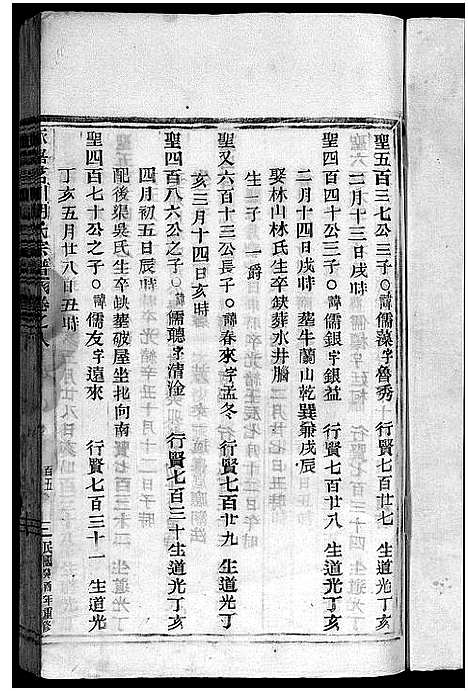 聖五百三七公三子○諱儒藻字魯秀　行賢七百廿七　生道光丁亥
二月十三日戌時
聖四百四十公三子○諱儒銀字銀益　行賢七百廿八　生道光丁亥
二月十四日戌時　塟牛蘭山乾巽兼戌辰
娶林山林氏生卒缺葬水井腦
生一子　一爵
聖又六百十三公長子○諱春來字孟冬　行賢七百廿九　生道光丁
亥三月十四日亥時
聖四百八六公之子○諱儒聽字清淦　行賢七百三十　生道光丁亥
四月初五日辰時
配後渠吳氏生卒缺塟破屋坐北向南
聖四百七十公之子○諱儒友字遠來　行賢七百三十一　生道光
丁亥五月廿八日丑時
氏宗譜　卷之八　百五　民國癸酉年重修